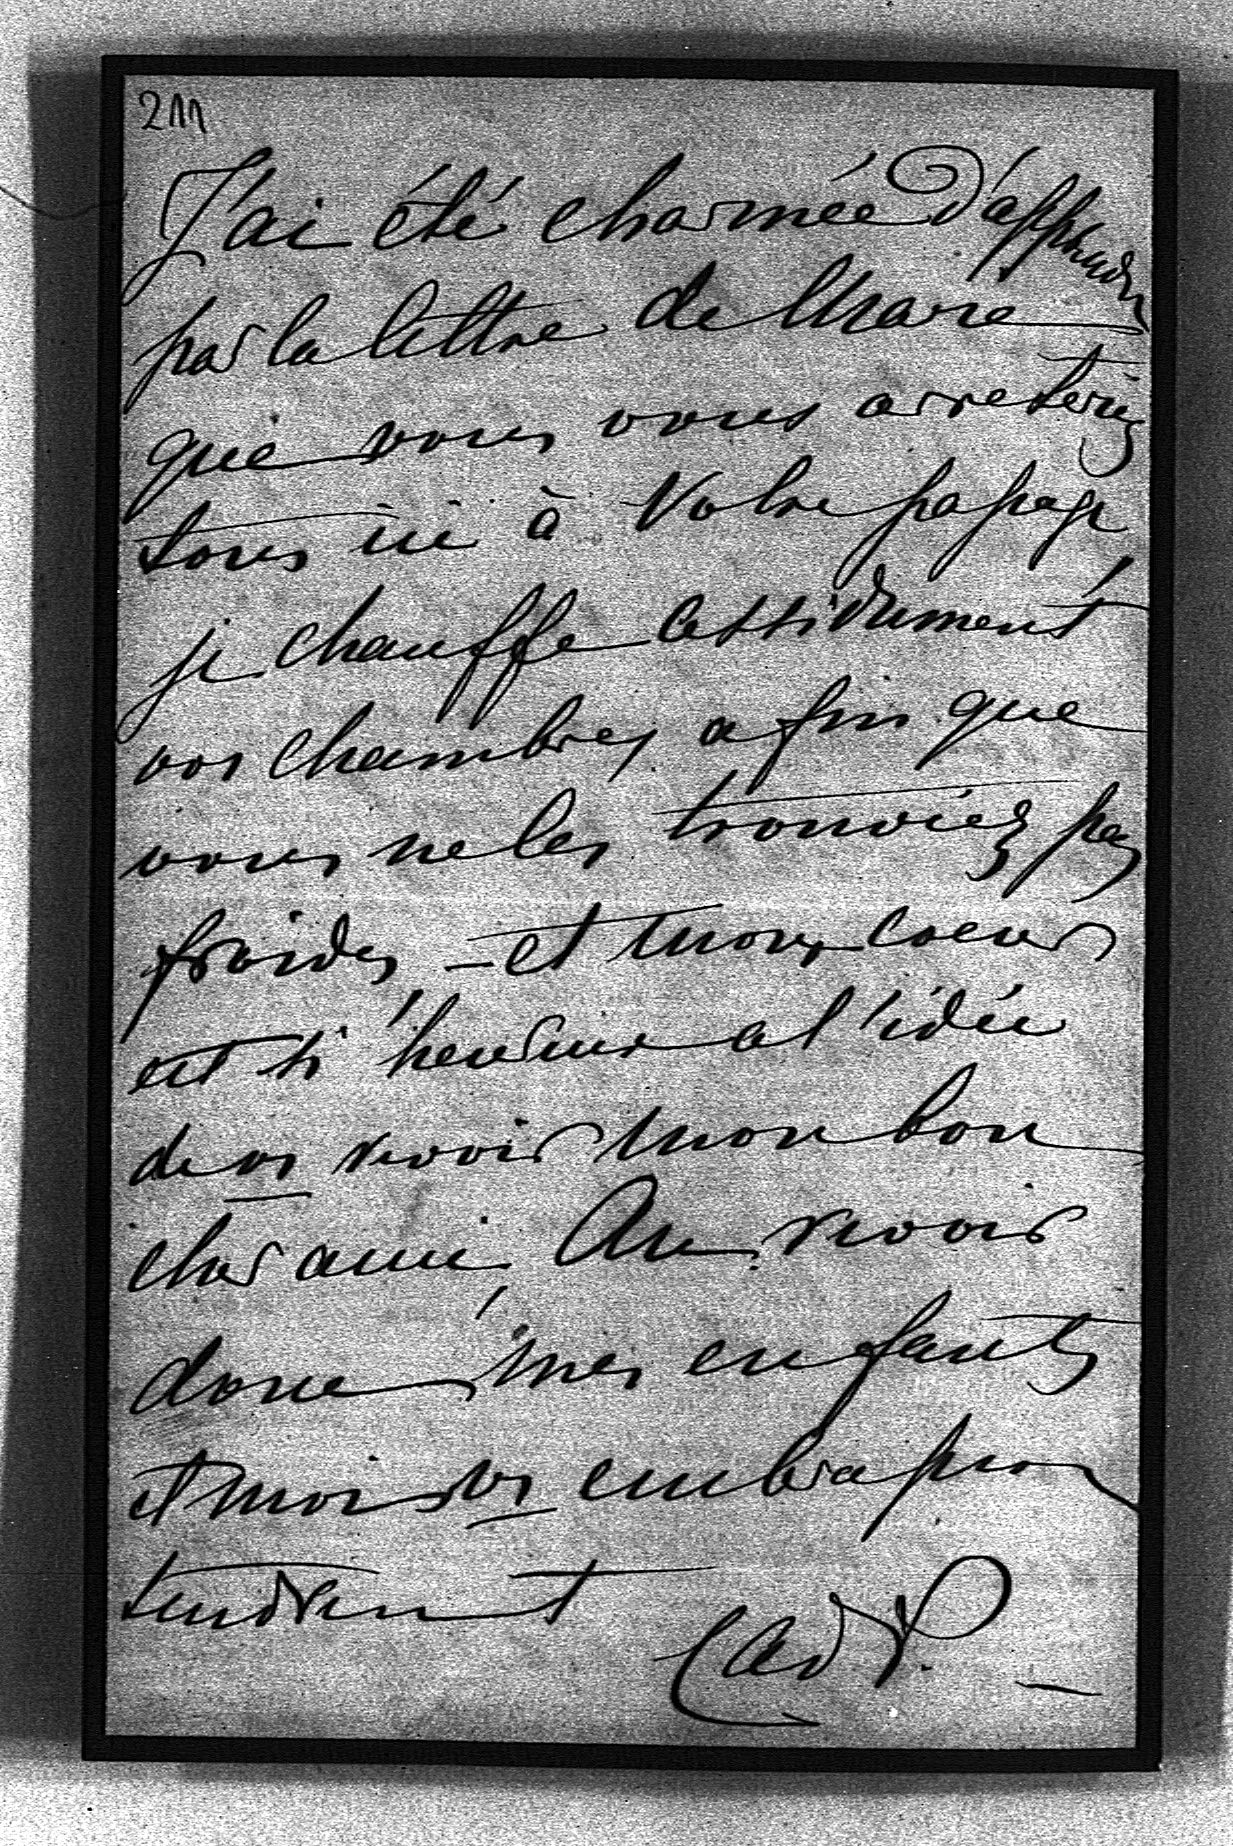 211
J'ai été charmée d'apprendre
par la lettre de Marie
que vous vous arreteriez
tous ici à Votre passage
je chauffe assidument
vos chambres afin que
vous ne les trouviez pas
froides – et mon coeur
est si heureux a l'idée
de vs revoir mon bon
cher ami. Au revoir
donc, mes enfants
et moi vs embrassons
tendremt